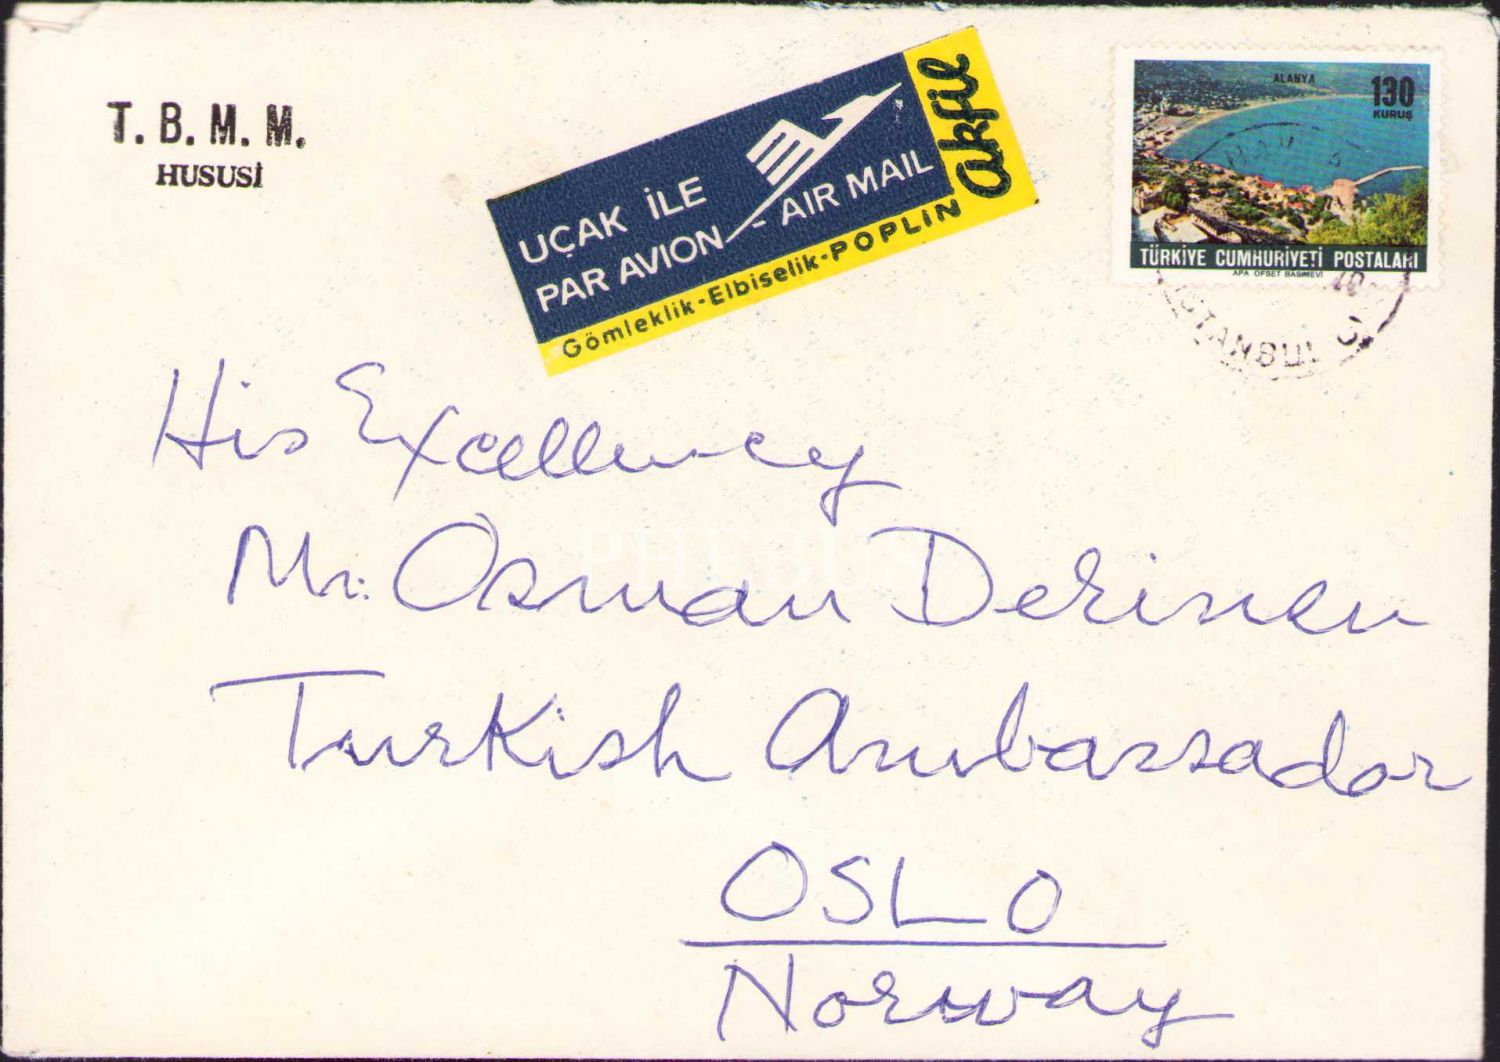 T. B. M. M.
HUSUSİ
UÇAK İLE
PAR AVION - AIR MAIL
Gömleklik-Elbiselik-POPLİN
akfil
ALANYA
130
KURUŞ
TÜRKİYE CUMHURİYETİ POSTALARI
APA OFSET BASIMEVI
İSTANBUL
His Excellency
Mr. Osman Derinsu
Turkish Ambassador
OSLO
Norway
PHEBUS